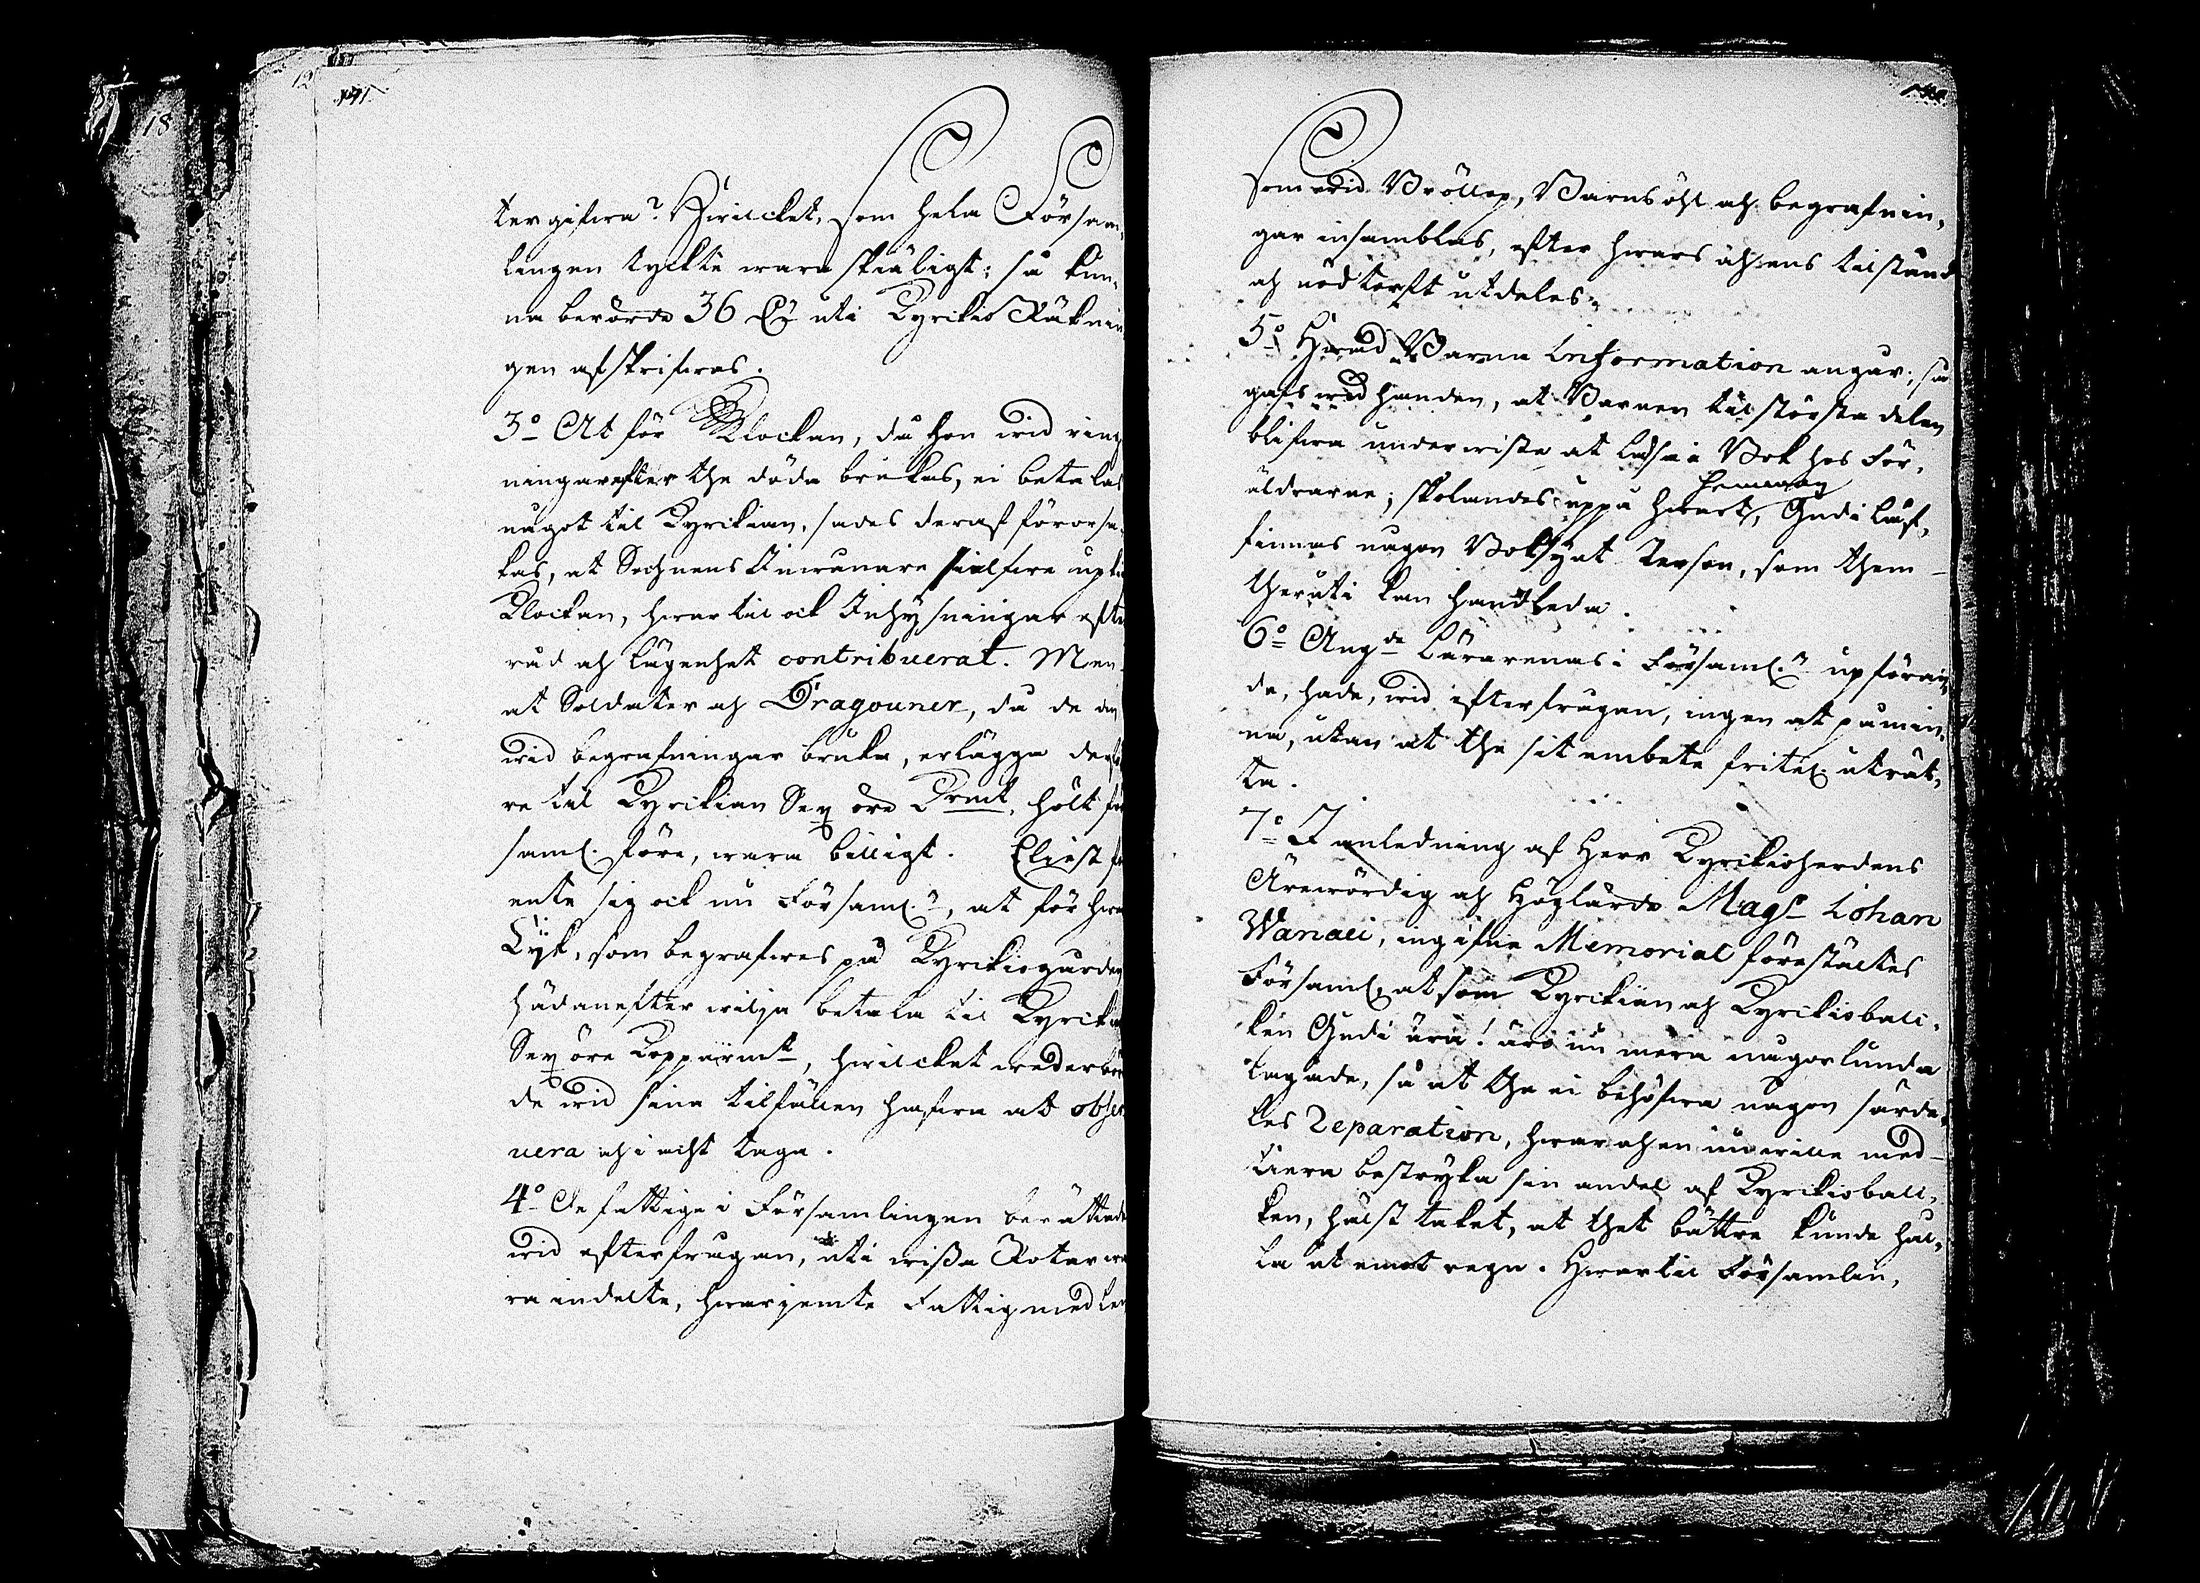 141.
tergifwa? Hwilcket, som hela Försam,
lingen tyckte wara skiäligt; så kun,
na berörde 36 uti Kyrkio Räknin
gen afskrifwas.
3:o At för Klockan, då hon wid ring
ningar efter the döda brukas, ei betalas
något til Kyrkian, sades deraf förorsa,
kas, at Sochnens Inwånare sielfwe up
Klockan, hwartil ock Inhysningar efte
råd och lägenhet contribuerat. Men
at Soldater och Dragouner, då de den
wid begrafningar bruka, erlägga der
re til Kyrkian Sex öre Kmt, hölt för
saml. före, wara billigt. Eliest för
ente sig ock nu Församl:n, at för hwa
Lijk, som begrafwes på Kyrkiogården
hädanefter wilja betala til Kyrkian
Sex öre Kopparmt, hwilcket wederbör
de wid sina tilfällen hafwa at obser
uera och i acht taga.
4:o De fattige i Församlingen berättade
wid efterfrågan, uti wissa Rotar wa
ra indelte, hwarjemte Fattigmedlen
som wid Bröllop, Barnsöhl och begrafnin,
gar insamblas, efter hwars och ens tilstånd
och nödtorft utdeles.
5:o Hwad Barna Information angår; så
gafs wid handen, at Barnen til största delen
blifwa underwiste at läsa i Bok hos För,
äldrarne; skolandes uppå hwart hemman, Gudi låf,
finnas någon Boksynt Person, som them
theruti kan handleda.
6:o Ang:de Lärarenas i Församl:n upföran
de, hade, wid efterfrågan, ingen at påmin,
na, utan at the sit embete fliteligen uträt,
ta.
7:o I anledning af Herr Kyrkioherdens
Ärewördig och Höglärde Mag:r Johan
Wanaei, ingifne Memorial förestältes
Församl. at som Kyrkian och Kyrkiobal,
ken Gudi ära! äro nu mera någorlunda
lagade, så at the ei behöfwa någon särde,
les Reparation, hwar och en nu wille med
tiera bestryka sin andel af Kyrkiobal,
ken, hälst taket, at thet bättre kunde hål,
la ut emot regn. Hwartil Församlin,